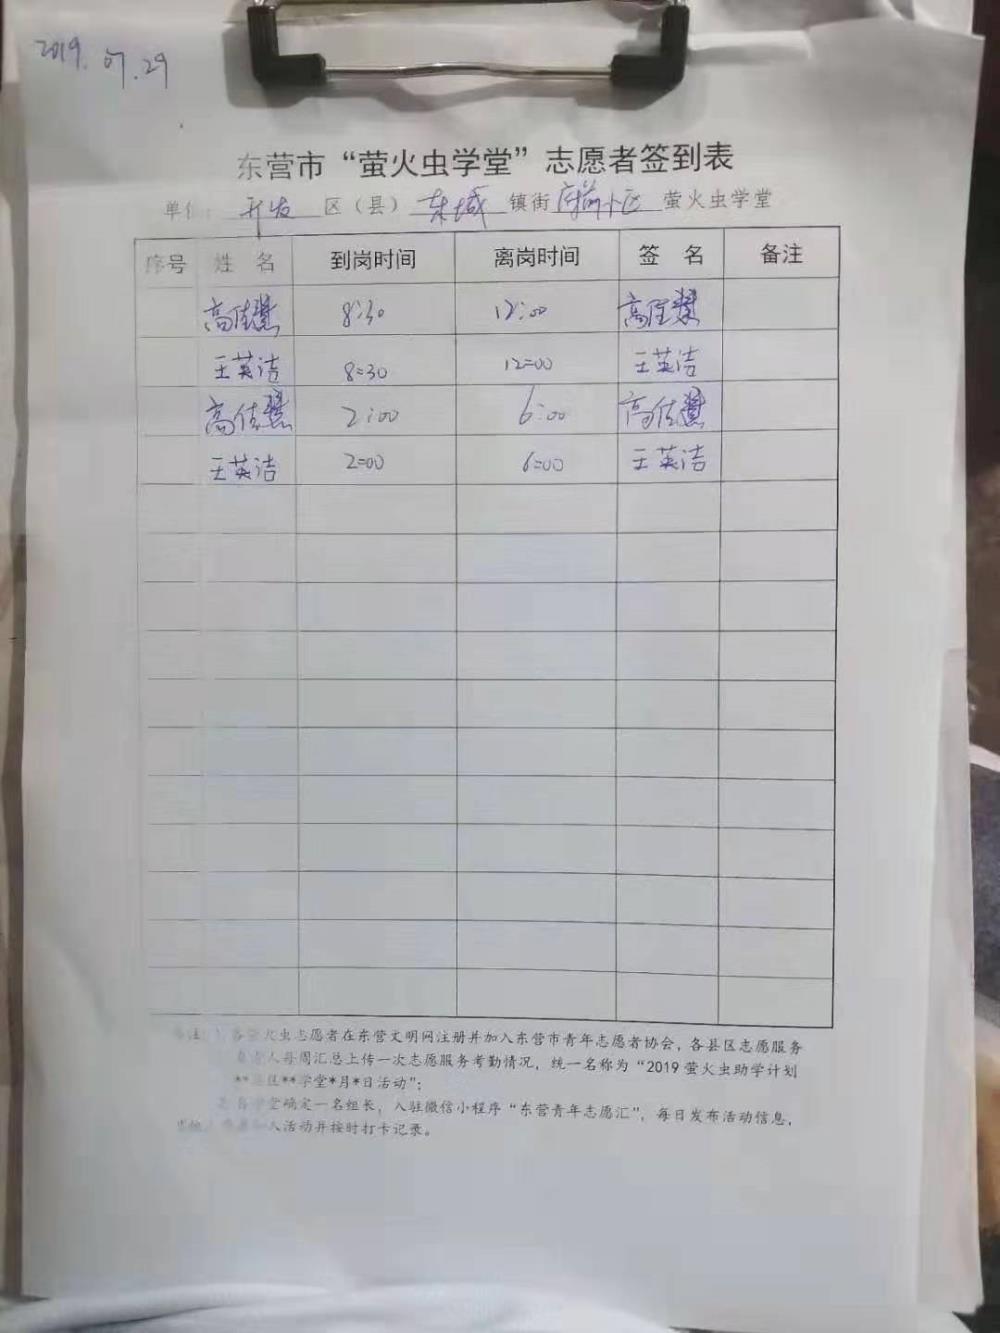 2019.07.29
东营市“萤火虫学堂”志愿者签到表
单位：开发 区（县） 东城 镇街 府前小区 萤火虫学堂
序号 姓 名 到岗时间 离岗时间 签 名 备注
高佳慧 8:30 12:00 高佳慧
王英洁 8:30 12:00 王英洁
高佳慧 2:00 6:00 高佳慧
王英洁 2:00 6:00 王英洁
火虫志愿者在东营文明网注册并加入东营市青年志愿者协会，各县区志愿服务
人每周汇总上传一次志愿服务考勤情况，统一名称为“2019萤火虫助学计划
**县区**学堂*月*日活动”；
学堂确定一名组长，入驻微信小程序“东营青年志愿汇”，每日发布活动信息，
人活动并按时打卡记录。